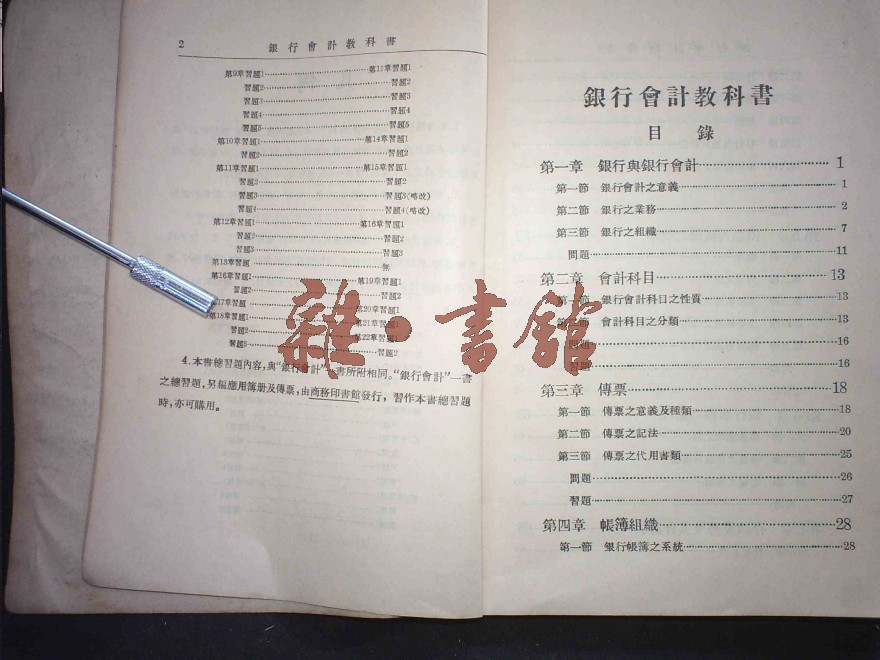 2 銀行會計教科書
第9章習題1…………第11章習題1
習題2…………習題2
習題3…………習題3
習題4…………習題4
習題5…………習題5
第10章習題1…………第14章習題1
習題2…………習題2
第11章習題1…………第15章習題1
習題2…………習題2
習題3…………習題3(略改)
習題4…………習題4(略改)
第12章習題1…………第16章習題1
習題2…………習題2
習題3…………習題3
第13章習題…………無
第16章習題1…………第19章習題1
習題2…………習題2
第17章習題…………第20章習題1
第18章習題1…………第21章習題1
習題2…………第22章習題1
習題3…………習題2
4.本書總習題內容,與“銀行會計”一書所附相同。“銀行會計”一書
之總習題,另編應用簿册及傳票,由商務印書館發行,習作本書總習題
時,亦可購用。
銀行會計教科書
目 錄
第一章 銀行與銀行會計…………1
第一節 銀行會計之意義…………1
第二節 銀行之業務…………2
第三節 銀行之組織…………7
問題…………11
第二章 會計科目…………13
第一節 銀行會計科目之性質…………13
第二節 會計科目之分類…………13
問題…………16
習題…………16
第三章 傳票…………18
第一節 傳票之意義及種類…………18
第二節 傳票之記法…………20
第三節 傳票之代用書類…………25
問題…………26
習題…………27
第四章 帳簿組織…………28
第一節 銀行帳簿之系統…………28
雜·書館